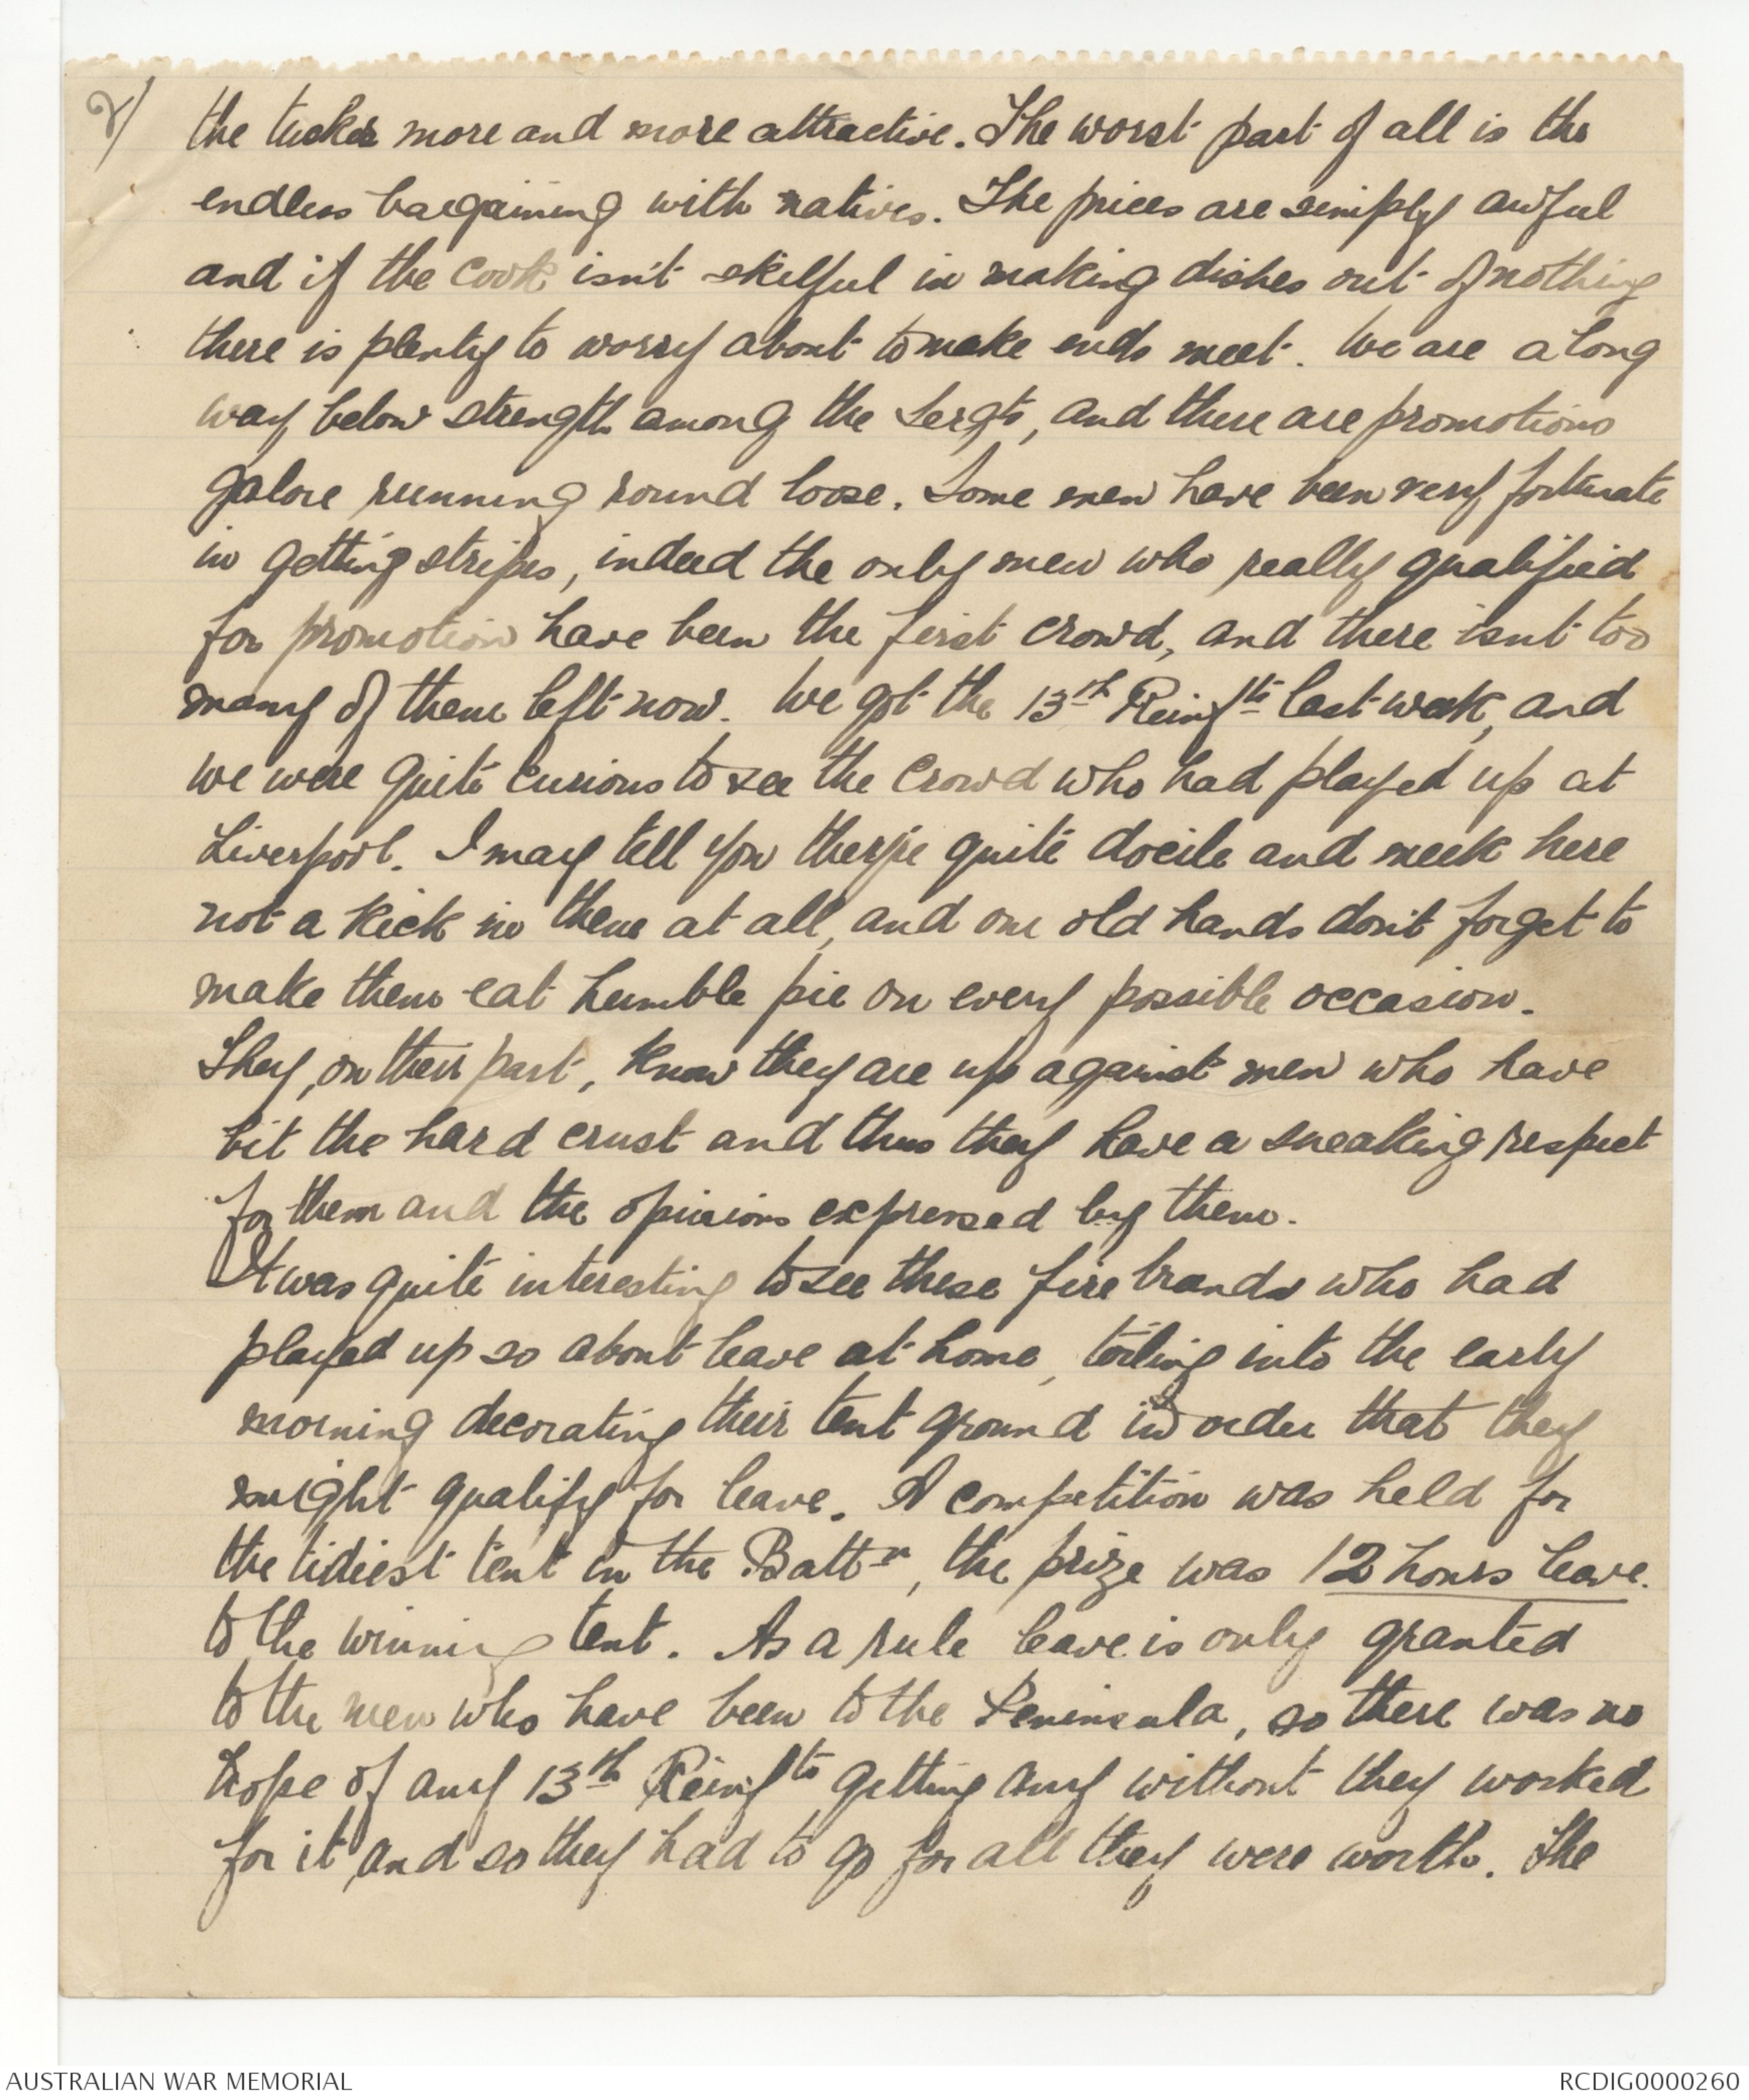 2/
the tucker more and more attractive. The worst part of all is the
endless bargaining with natives. The prices are simply awful
and if the cook isn't skilful in making dishes out of nothing
there is plenty to worry about to make ends meet. We are a long
way below strength among the Sergts, and there are promotions
galore running round loose. Some men have been very fortunate
in getting stripes, indeed the only men who really qualified
for promotion have been the first crowd, and there isnt too
many of them left now. We got the 13th Reinfts last week, and
we were quite curious to see the crowd who had played up at
Liverpool. I may tell you they're quite docile and meek here
not a kick in them at all, and our old hands don't forget to
make them eat humble pie on every possible occasion.
They, on their part, know they are up against men who have
bit the hard crust and thus they have a sneaking respect
for them and the opinions expressed by them.
It was quite interesting to see these fire brands who had
played up so about leave at home, toiling into the early
morning decorating their tent ground in order that they
might qualify for leave. A competition was held for
the tidiest tent in the Battn, the prize was 12 hours leave.
to the winning tent. As a rule leave is only granted
to the men who have been to the Peninsula, so there was no
hope of any 13th Reinfts getting any without they worked
for it, and so they had to go for all they were worth. The
AUSTRALIAN WAR MEMORIAL
RCDIG0000260